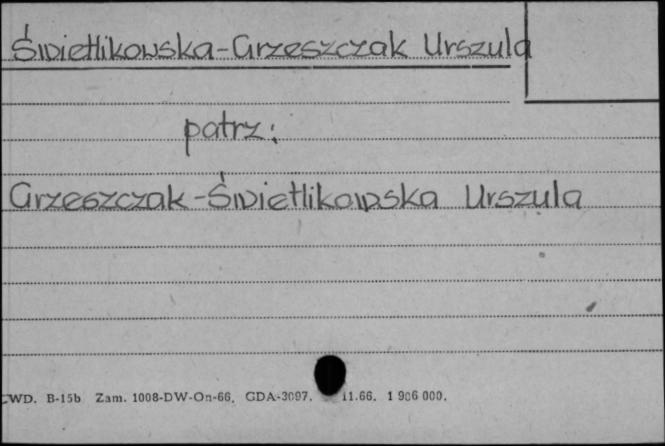 Świetlikowska-Grzeszczak Urszula
patrz:
Grzeszczak-Świetlikowska Urszula
CWD. B-15b Zam. 1008-DW-On-66. GDA-3097. 11.66. 1 906 000.